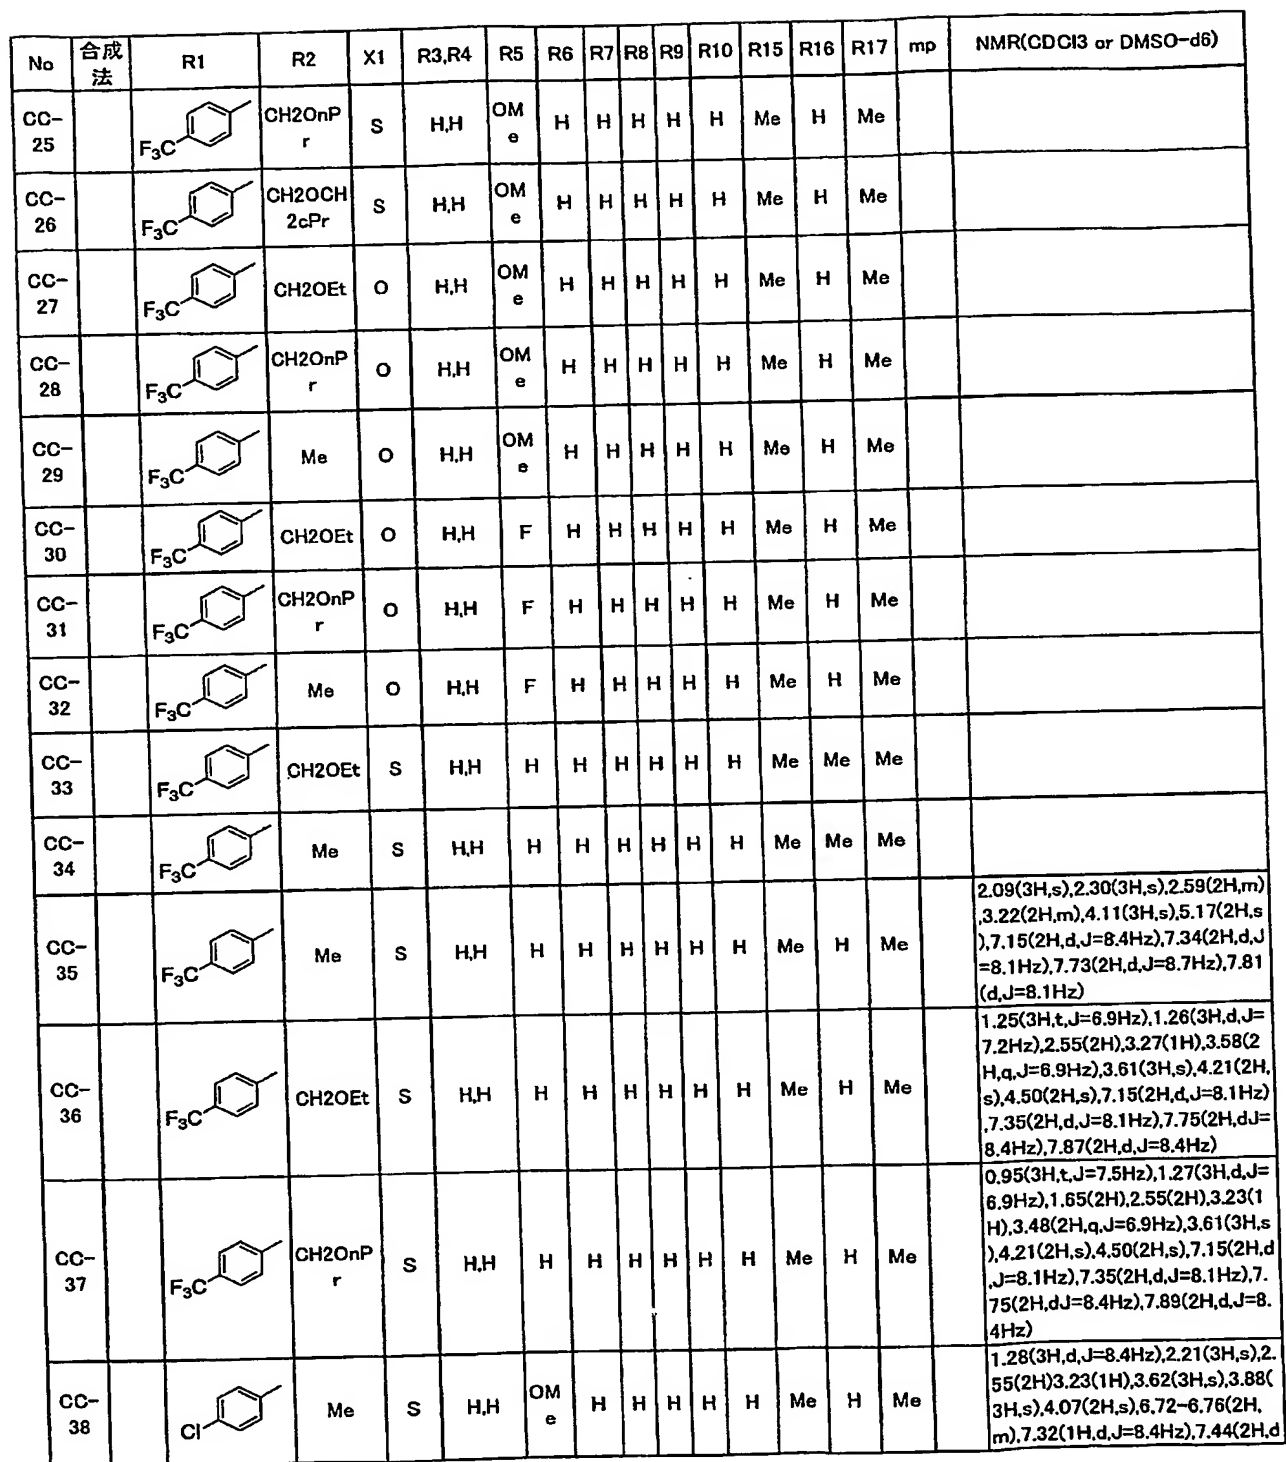 No 合成 R1 R2 X1 R3,R4 R5 R6 R7 R8 R9 R10 R15 R16 R17 mp NMR(CDCl3 or DMSO-d6)
法
CC- CH2OnP S H,H OM H H H H H Me H Me
25 F3C r e
CC- CH2OCH S H,H OM H H H H H Me H Me
26 F3C 2cPr e
CC- CH2OEt O H,H OM H H H H H Me H Me
27 F3C e
CC- CH2OnP O H,H OM H H H H H Me H Me
28 F3C r e
CC- Me O H,H OM H H H H H Me H Me
29 F3C e
CC- CH2OEt O H,H F H H H H H Me H Me
30 F3C
CC- CH2OnP O H,H F H H H H H Me H Me
31 F3C r
CC- Me O H,H F H H H H H Me H Me
32 F3C
CC- CH2OEt S H,H H H H H H H Me Me Me
33 F3C
CC- Me S H,H H H H H H H Me Me Me
34 F3C
CC- Me S H,H H H H H H H Me H Me
35 F3C
2.09(3H,s),2.30(3H,s),2.59(2H,m)
,3.22(2H,m),4.11(3H,s),5.17(2H,s
),7.15(2H,d,J=8.4Hz),7.34(2H,d,J
=8.1Hz),7.73(2H,d,J=8.7Hz),7.81
(d,J=8.1Hz)
CC- CH2OEt S H,H H H H H H H Me H Me
36 F3C
1.25(3H,t,J=6.9Hz),1.26(3H,d,J=
7.2Hz),2.55(2H),3.27(1H),3.58(2
H,q,J=6.9Hz),3.61(3H,s),4.21(2H,
s),4.50(2H,s),7.15(2H,d,J=8.1Hz)
,7.35(2H,d,J=8.1Hz),7.75(2H,dJ=
8.4Hz),7.87(2H,d,J=8.4Hz)
CC- CH2OnP S H,H H H H H H H Me H Me
37 F3C r
0.95(3H,t,J=7.5Hz),1.27(3H,d,J=
6.9Hz),1.65(2H),2.55(2H),3.23(1
H),3.48(2H,q,J=6.9Hz),3.61(3H,s
),4.21(2H,s),4.50(2H,s),7.15(2H,d
,J=8.1Hz),7.35(2H,d,J=8.1Hz),7.
75(2H,dJ=8.4Hz),7.89(2H,d,J=8.
4Hz)
CC- Me S H,H OM H H H H H Me H Me
38 Cl e
1.28(3H,d,J=8.4Hz),2.21(3H,s),2.
55(2H)3.23(1H),3.62(3H,s),3.88(
3H,s),4.07(2H,s),6.72-6.76(2H,
m),7.32(1H,d,J=8.4Hz),7.44(2H,d